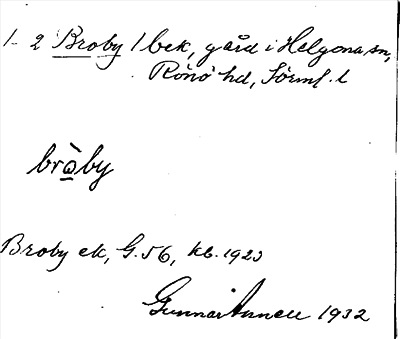 1-2 Broby 1 bek, gård i Helgona sn,
Rönö hd, Sörml. l
bròby
Broby ek, G. 56, kb. 1923
Gunnar Annell 1932